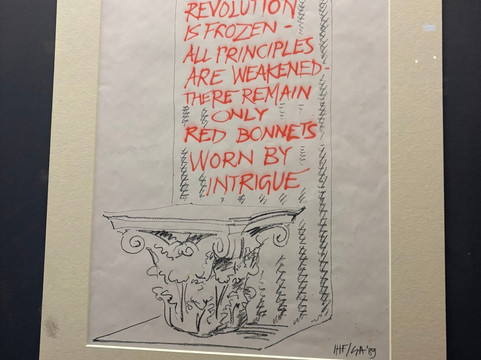 REVOLUTION
IS FROZEN -
ALL PRINCIPLES
ARE WEAKENED -
THERE REMAIN
ONLY
RED BONNETS
WORN BY
INTRIGUE
IHF/GA '89